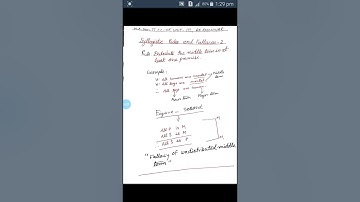 84% 1:29 pm
Syllogistic Rules and Fallacies-2
R2 Distribute the middle term in at
least one premise.
Example:-
All humans are mortal → middle
term
All dogs are mortal
∴ All dogs are human
Minor term Major term
Figure - second
All P is M
All S is M
All S is P
M
M
"Fallacy of undistributed middle
term"